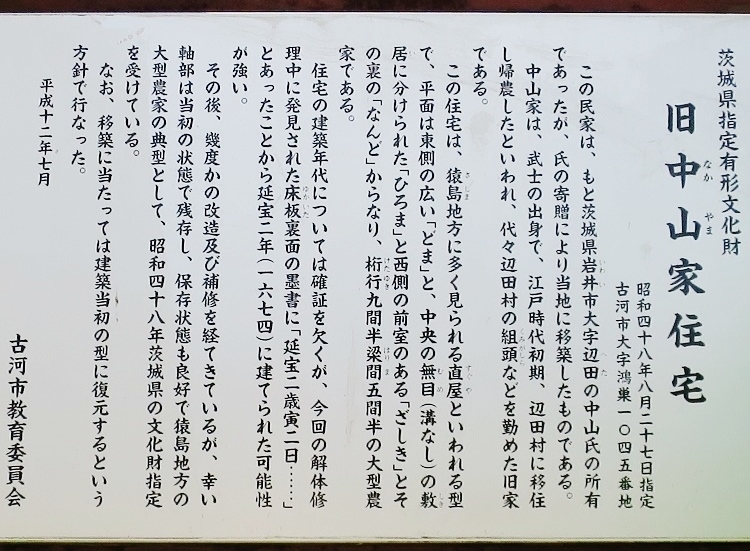 茨城県指定有形文化財
旧中山家住宅
なか やま
昭和四十八年八月二十七日指定
古河市大字鴻巣一〇四五番地
この民家は、もと茨城県岩井市大字辺田の中山氏の所有
いわい へた
であったが、氏の寄贈により当地に移築したものである。
中山家は、武士の出身で、江戸時代初期、辺田村に移住
し帰農したといわれ、代々辺田村の組頭などを勤めた旧家
くみがしら
である。
この住宅は、猿島地方に多く見られる直屋といわれる型
さしま すぐや
で、平面は東側の広い「どま」と、中央の無目(溝なし)の敷
むめ しき
居に分けられた「ひろま」と西側の前室のある「ざしき」とそ
い
の裏の「なんど」からなり、桁行九間半梁間五間半の大型農
けたゆき はりま
家である。
住宅の建築年代については確証を欠くが、今回の解体修
理中に発見された床板裏面の墨書に「延宝二歳寅二日……」
ゆかいた
とあったことから延宝二年(一六七四)に建てられた可能性
が強い。
その後、幾度かの改造及び補修を経てきているが、幸い
軸部は当初の状態で残存し、保存状態も良好で猿島地方の
大型農家の典型として、昭和四十八年茨城県の文化財指定
を受けている。
なお、移築に当たっては建築当初の型に復元するという
方針で行なった。
平成十二年七月
古河市教育委員会